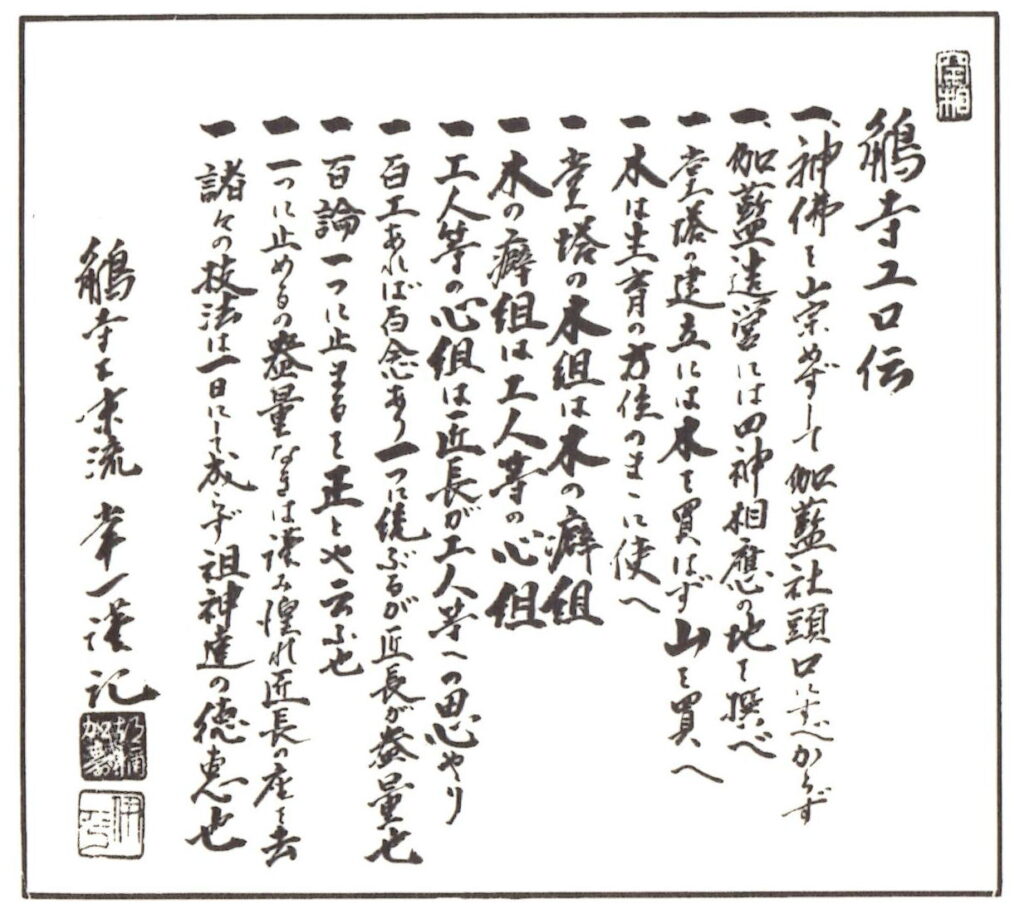 鵤寺工口伝
一、神佛を崇めずして伽藍社頭口にすべからず
一、伽藍造営には四神相應の地を撰べ
一 堂塔の建立には木を買はず山を買へ
一 木は生育の方位のまゝに使へ
一 堂塔の木組は木の癖組
一 木の癖組は工人等の心組
一 工人等の心組は匠長が工人等への思やり
一 百工あれば百念あり一つに統ぶるが匠長が器量也
一 百論一つに止まるを正とや云ふ也
一 一つに止めるの器量なきは謹み惶れ匠長の座を去
一 諸々の技法は一日にして成らず祖神達の徳恵也
鵤寺工 流 常一謹記